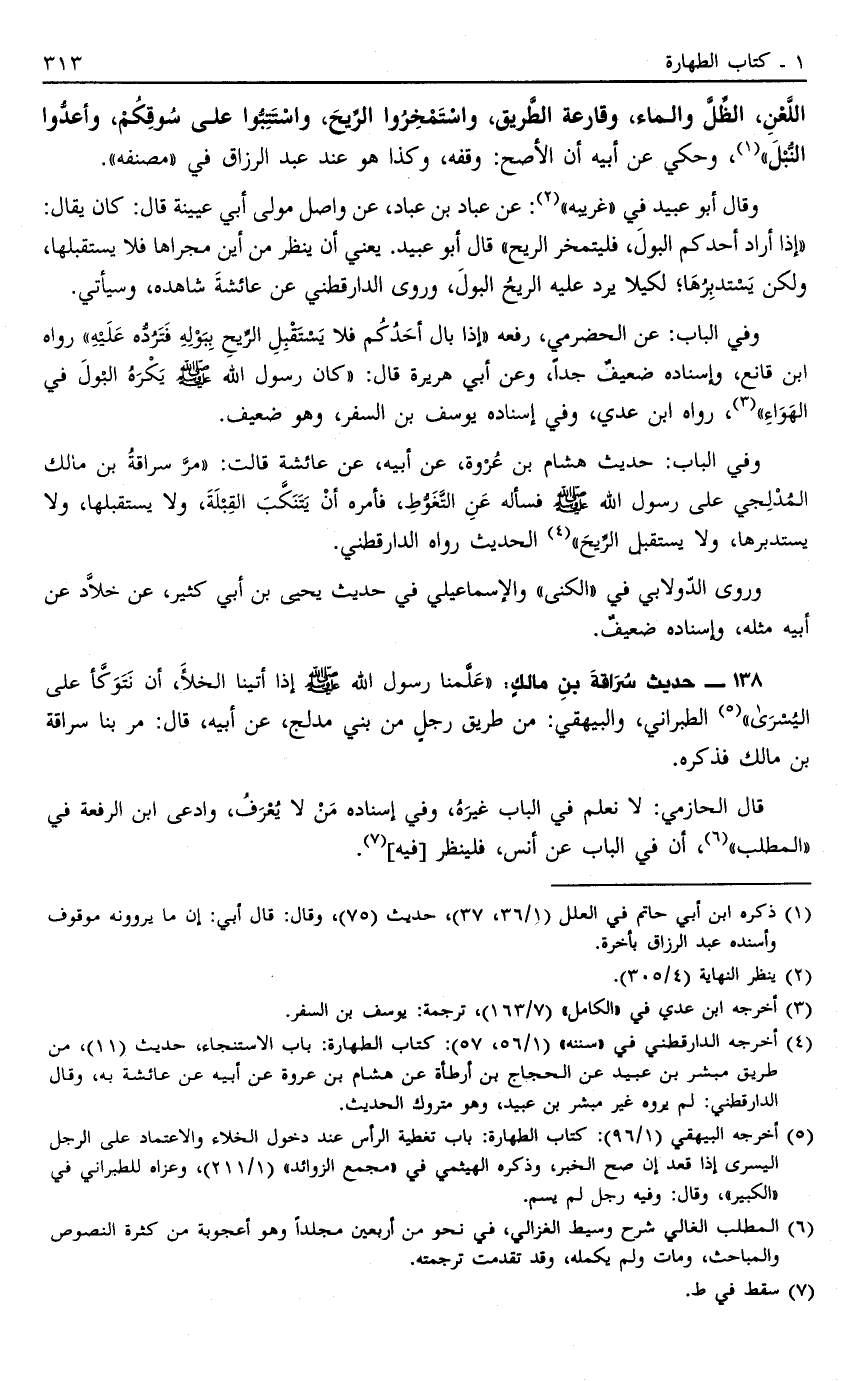 ١ ـ كتاب الطهارة ٣١٣
اللَّعْنِ، الظِّلَّ والـماء، وقارعة الطَّريق، واسْتَمْخِرُوا الرِّيحَ، واسْتَتِبُّوا علـى سُوقِكُمْ، وأعدُّوا
النُّبْلَ»(١)، وحكي عن أبيه أن الأصح: وقفه، وكذا هو عند عبد الرزاق في «مصنفه».
وقال أبو عبيد في «غريبه»(٢): عن عباد بن عباد، عن واصل مولى أبي عيينة قال: كان يقال:
«إذا أراد أحدكم البولَ، فليتمخر الريح» قال أبو عبيد. يعني أن ينظر من أين مجراها فلا يستقبلها،
ولكن يَسْتدبِرُهَا؛ لكيلا يرد عليه الريحُ البولَ، وروى الدارقطني عن عائشةَ شاهده، وسيأتي.
وفي الباب: عن الحضرمي، رفعه «إذا بال أحَدُكُم فلا يَسْتَقْبِلِ الرِّيحِ بِبَوْلِهِ فَتَرُدُّه عَلَيْهِ» رواه
ابن قانع، وإسناده ضعيفٌ جداً، وعن أبي هريرة قال: «كان رسول الله ﷺ يَكْرَهُ البَوْلَ في
الهَوَاءِ»(٣)، رواه ابن عدي، وفي إسناده يوسف بن السفر، وهو ضعيف.
وفي الباب: حديث هشام بن عُرْوة، عن أبيه، عن عائشة قالت: «مرَّ سراقةُ بن مالك
المُدْلِجي على رسول الله ﷺ فسأله عَنِ التَّغَوُّطِ، فأمره أنْ يَتَنَكَّبَ القِبْلَةَ، ولا يستقبلها، ولا
يستدبرها، ولا يستقبل الرِّيحَ»(٤) الحديث رواه الدارقطني.
وروى الدّولابي في «الكنى» والإسماعيلي في حديث يحيى بن أبي كثير، عن خلاَّد عن
أبيه مثله، وإسناده ضعيفٌ.
١٣٨ ـ حديث سُرَاقةَ بنِ مالكٍ: «عَلَّمنا رسول الله ﷺ إذا أتينا الخلأَ، أن نَتَوَكَّأ على
اليُسْرَىٰ»(٥) الطبراني، والبيهقي: من طريق رجلٍ من بني مدلج، عن أبيه، قال: مر بنا سراقة
بن مالك فذكره.
قال الحازمي: لا نعلم في الباب غيرَهُ، وفي إسناده مَنْ لا يُعْرَفُ، وادعى ابن الرفعة في
«المطلب»(٦)، أن في الباب عن أنس، فلينظر [فيه](٧).
(١) ذكره ابن أبي حاتم في العلل (٣٦/١، ٣٧)، حديث (٧٥)، وقال: قال أبي: إن ما يروونه موقوف
وأسنده عبد الرزاق بأخرة.
(٢) ينظر النهاية (٣٠٥/٤).
(٣) أخرجه ابن عدي في «الكامل» (١٦٣/٧)، ترجمة: يوسف بن السفر.
(٤) أخرجه الدارقطني في «سننه» (٥٦/١، ٥٧): كتاب الطهارة: باب الاستنجاء، حديث (١١)، من
طريق مبشر بن عبيد عن الحجاج بن أرطأة عن هشام بن عروة عن أبيه عن عائشة به، وقال
الدارقطني: لم يروه غير مبشر بن عبيد، وهو متروك الحديث.
(٥) أخرجه البيهقي (٩٦/١): كتاب الطهارة: باب تغطية الرأس عند دخول الخلاء والاعتماد على الرجل
اليسرى إذا قعد إن صح الخبر، وذكره الهيثمي في «مجمع الزوائد» (٢١١/١)، وعزاه للطبراني في
«الكبير»، وقال: وفيه رجل لم يسم.
(٦) المطلب الغالي شرح وسيط الغزالي، في نحو من أربعين مجلداً وهو أعجوبة من كثرة النصوص
والمباحث، ومات ولم يكمله، وقد تقدمت ترجمته.
(٧) سقط في ط.